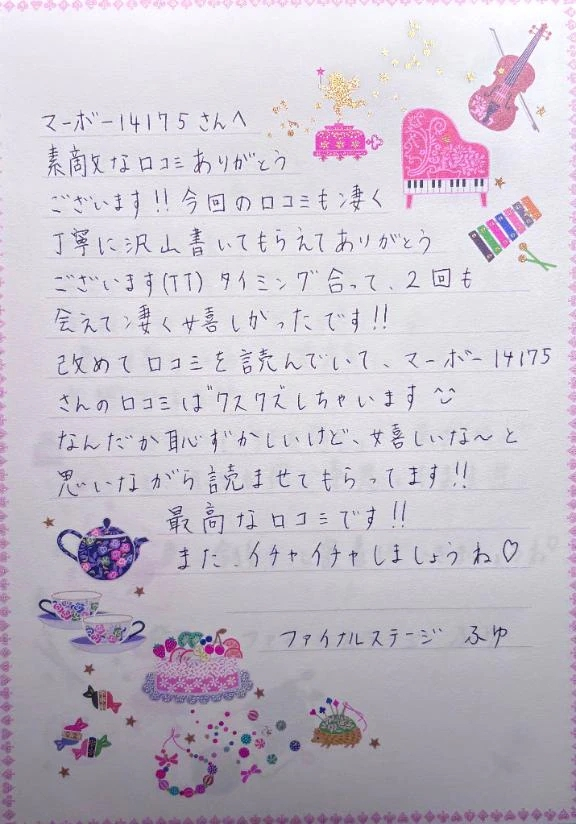 マーボー14175さんへ
素敵な口コミありがとう
ございます!!今回の口コミも凄く
丁寧に沢山書いてもらえてありがとう
ございます(TT) タイミング合って、2回も
会えて凄く嬉しかったです!!
改めて口コミを読んでいて、マーボー14175
さんの口コミはクスクスしちゃいます^^
なんだか恥ずかしいけど、嬉しいな〜と
思いながら読ませてもらってます!!
最高な口コミです!!
また、イチャイチャしましょうね♡
ファイナルステージ ふゆ